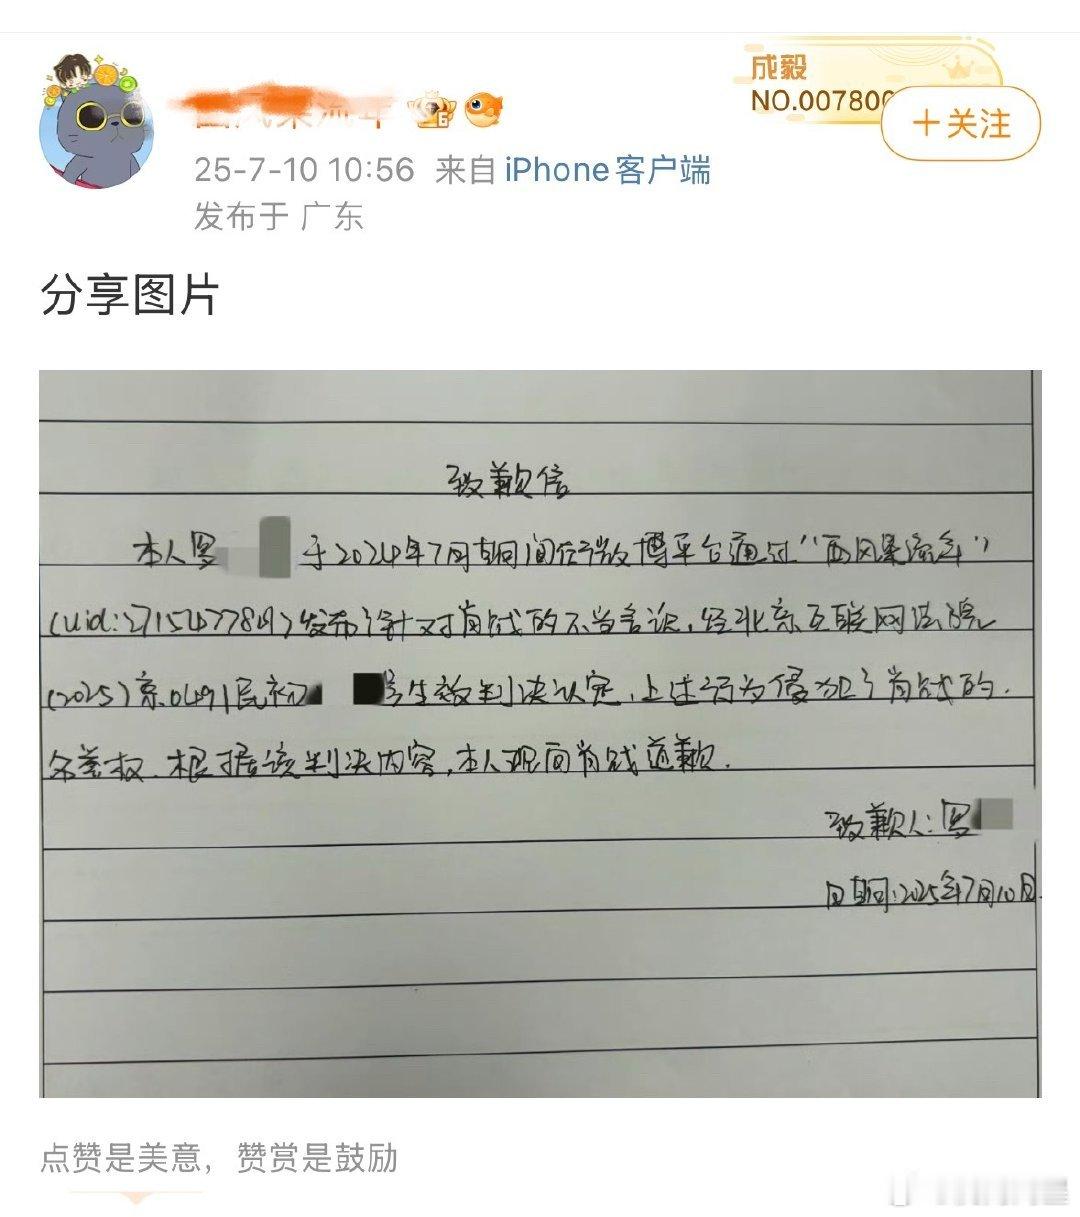 成毅
NO.007800
+关注
25-7-10 10:56 来自 iPhone客户端
发布于 广东
分享图片
致歉信
本人罗 于2024年7月期间在微博平台通过“西风梨流年”
(uid:2715477849)发布了针对肖战的不当言论,经北京互联网法院
(2025)京0491民初 号生效判决认定,上述行为侵犯了肖战的
名誉权.根据该判决内容,本人现向肖战道歉.
致歉人:罗
日期:2025年7月10日.
点赞是美意，赞赏是鼓励